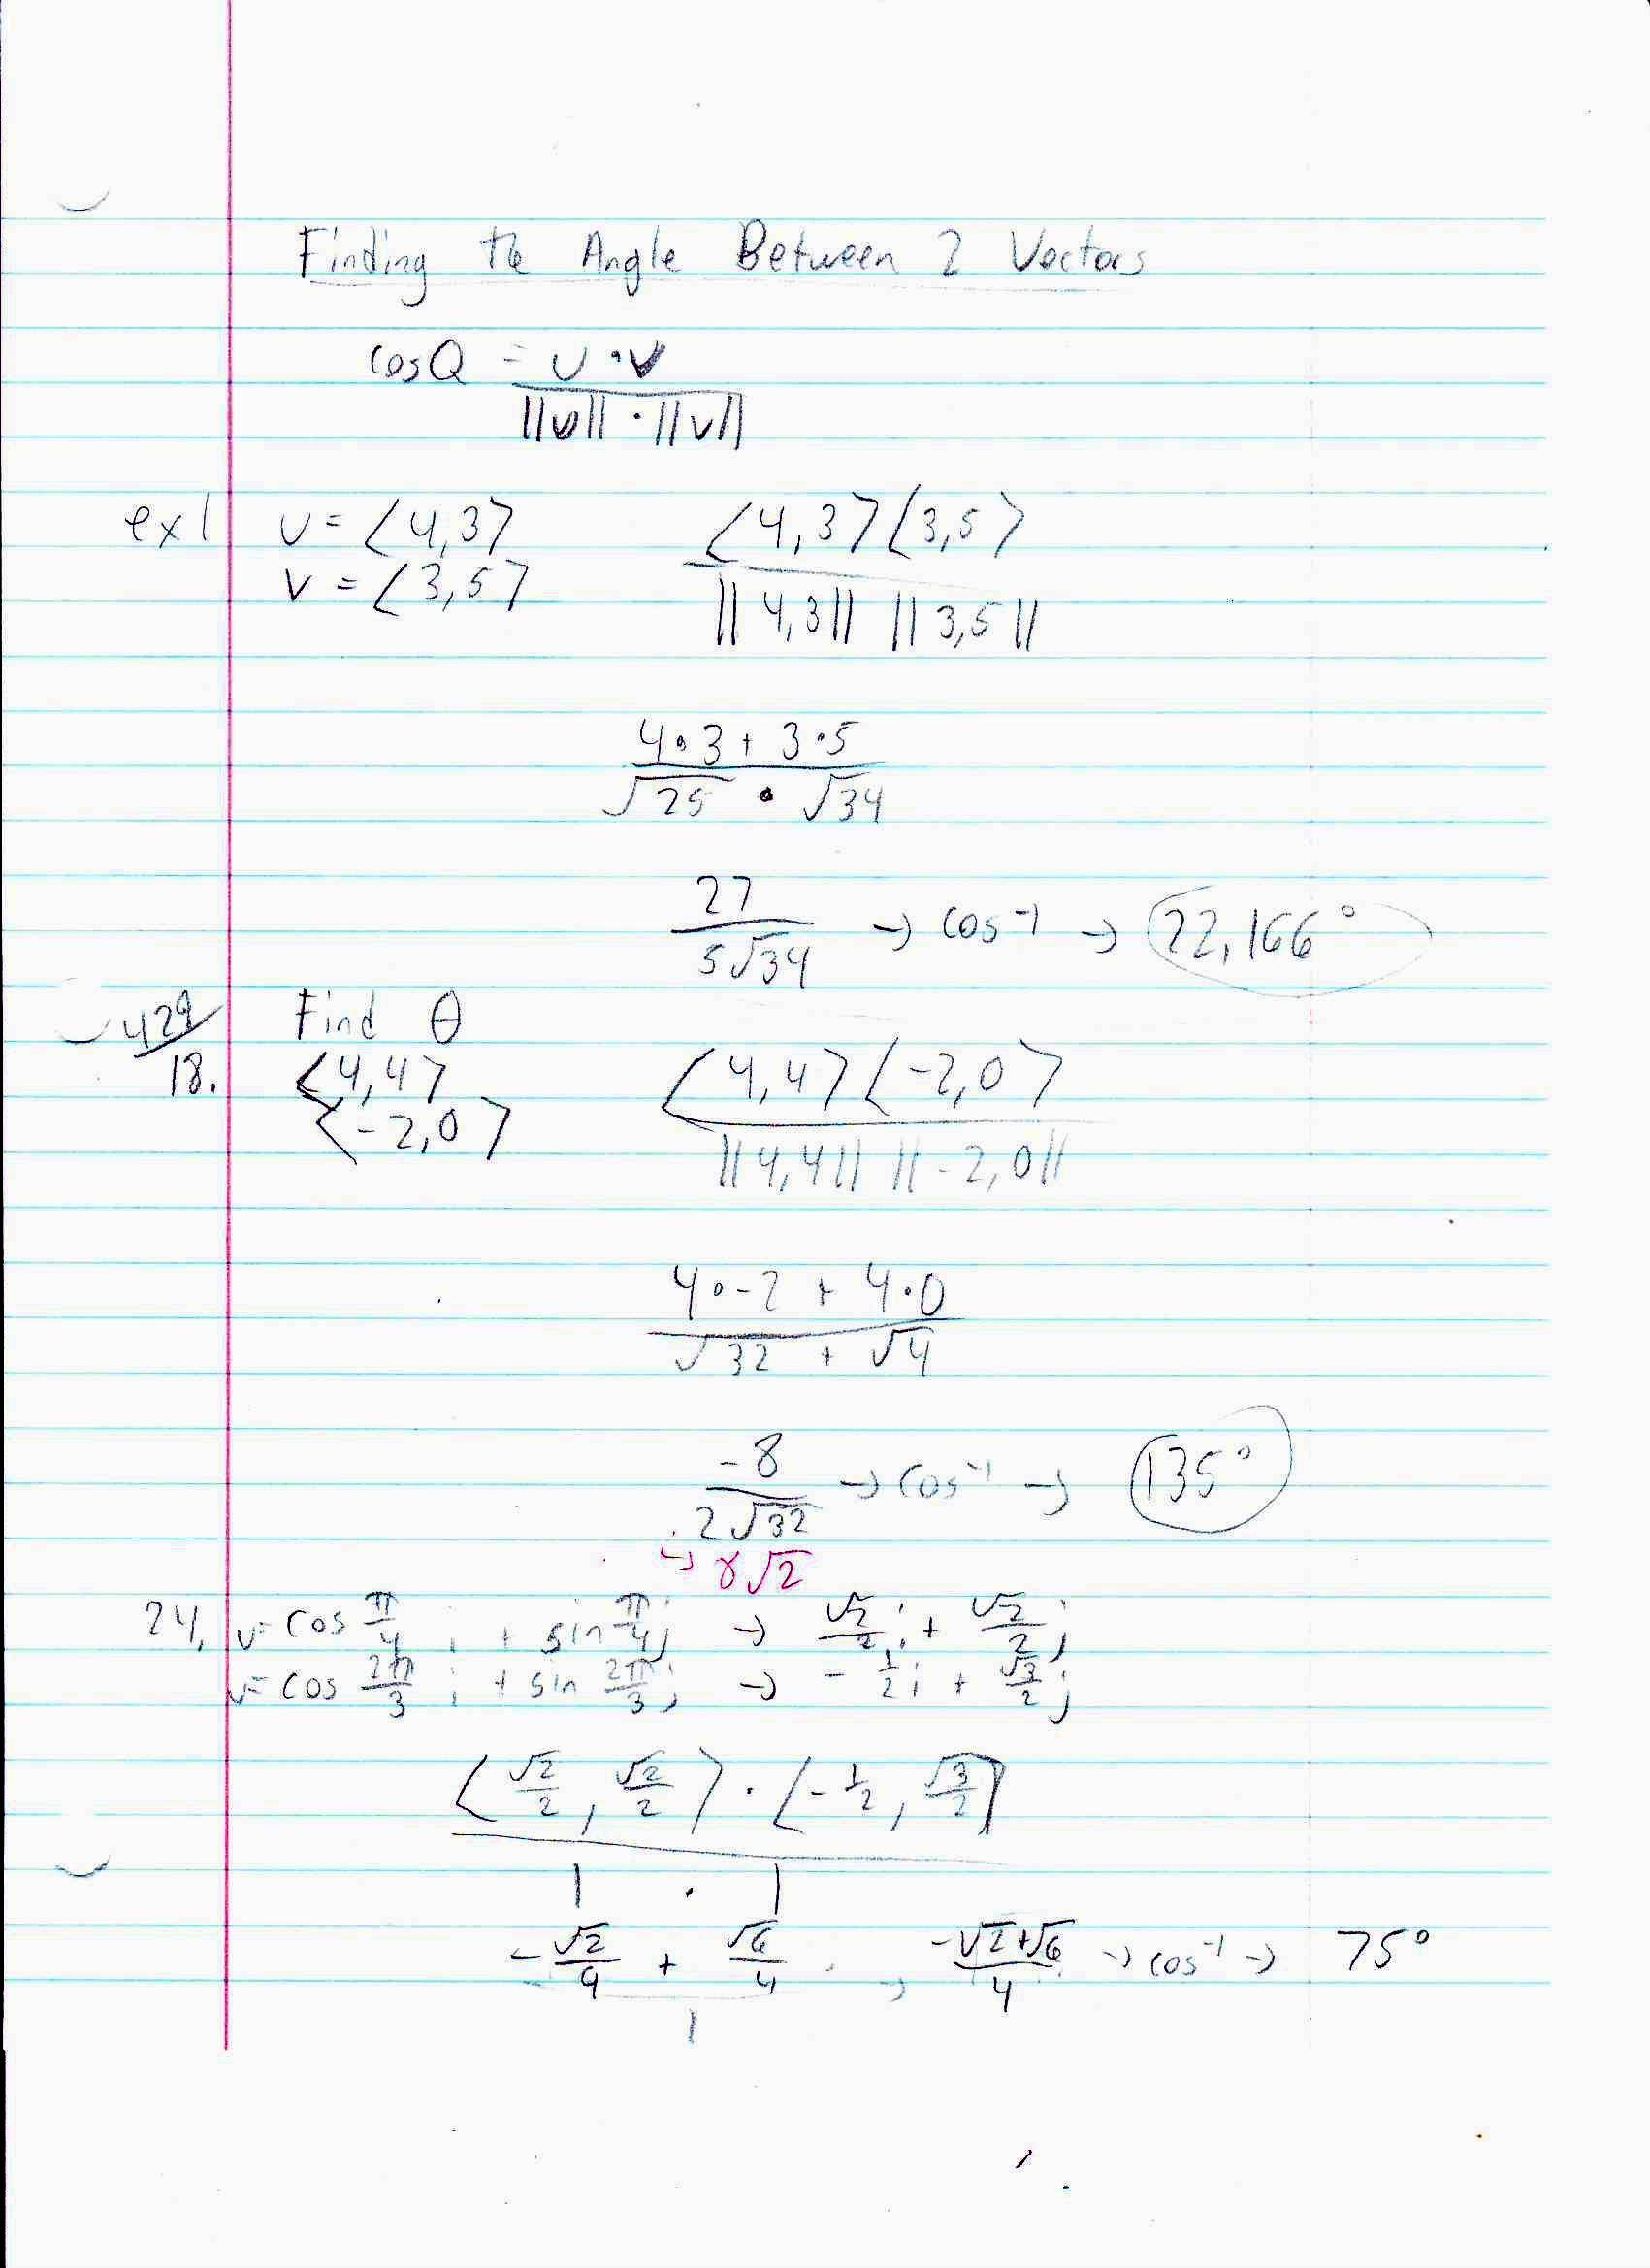 Finding the Angle Between 2 Vectors
cosQ = u · v
||u|| · ||v||
ex1 u = <4,3> <4,3><3,5>
v = <3,5> ||4,3|| ||3,5||
4·3 + 3·5
√25 · √34
27
5√34 → cos⁻¹ → 22.166°
429/18. Find θ
<4,4> <4,4><-2,0>
<-2,0> ||4,4|| ||-2,0||
4·-2 + 4·0
√32 + √4
-8
2√32 → cos⁻¹ → 135°
↳ 8√2
24. u= cos π/4 i + sin π/4 j → √2/2 i + √2/2 j
v= cos 2π/3 i + sin 2π/3 j → - 1/2 i + √3/2 j
<√2/2, √2/2> · <-1/2, √3/2>
1 · 1
-√2/4 + √6/4 → -√2+√6/4 → cos⁻¹ → 75°
1